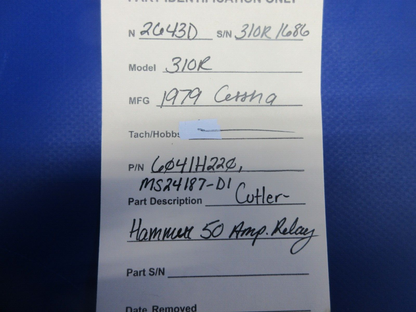 PART IDENTIFICATION ONLY
N 2643D S/N 310R1686
Model 310R
MFG 1979 Cessna
Tach/Hobbs
P/N 6041H220,
MS24187-D1
Part Description Cutler-
Hammer 50 Amp. Relay
Part S/N
Date Removed